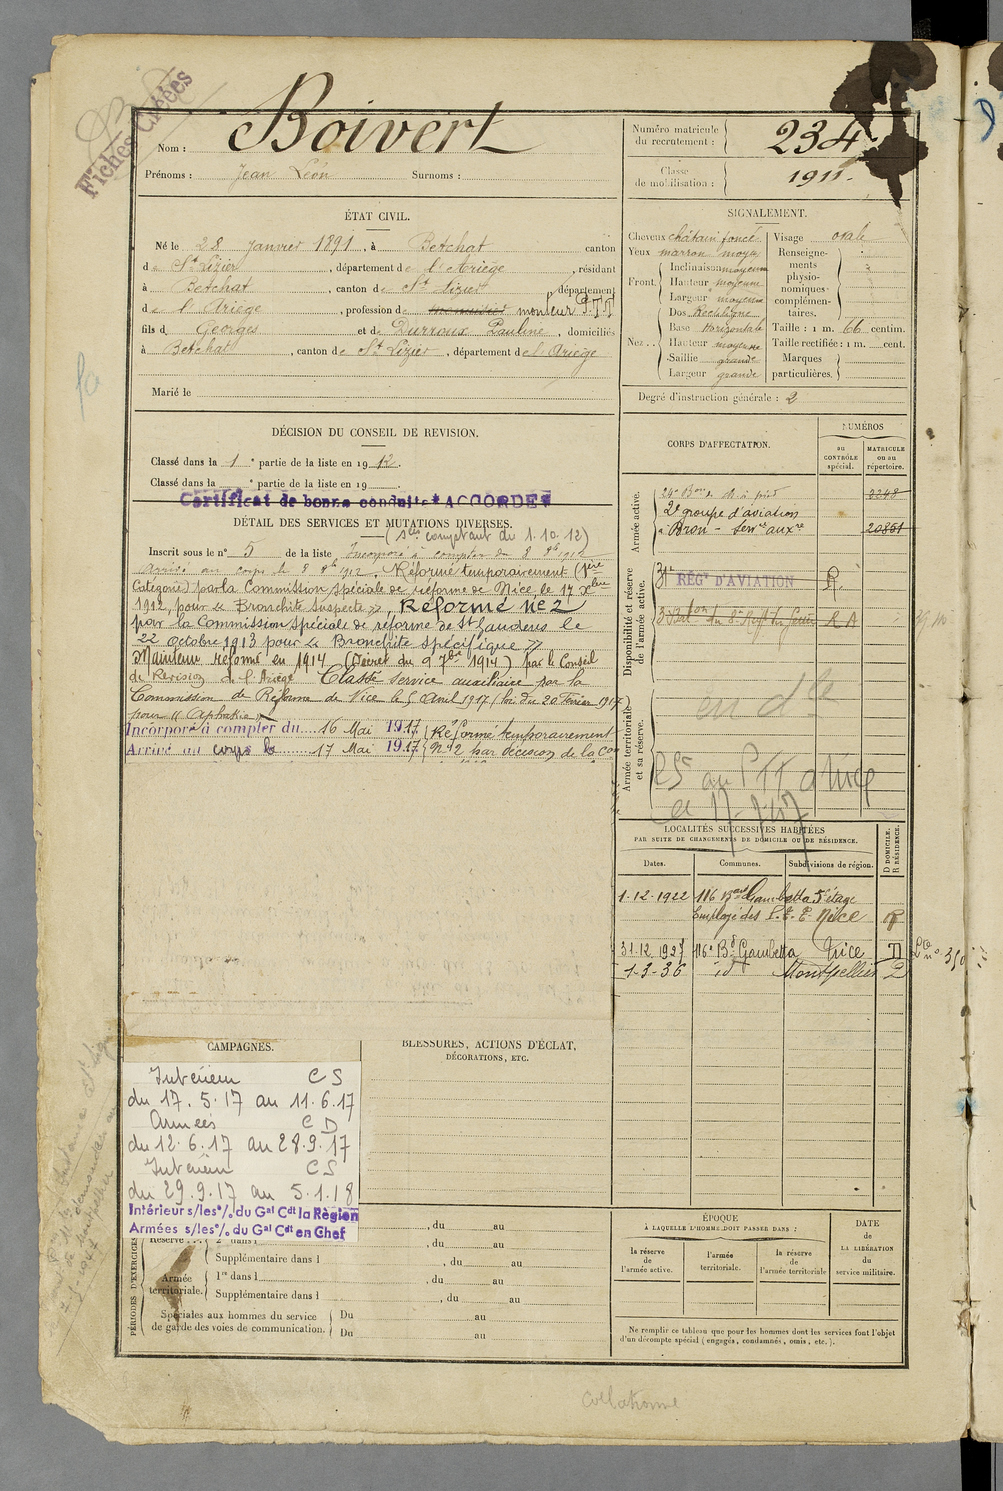 Fiches Créées
Nom : Boivert
Prénoms : Jean Léon Surnoms :
Numéro matricule
du recrutement : 234
Classe
de mobilisation : 1911.
ÉTAT CIVIL.
Né le 28 Janvier 1891, à Betchat canton
de St Lizier, département de l'Ariège, résidant
à Betchat, canton de St Lizier département
de l'Ariège, profession de monteur P.T.T
fils de Georges et de Durroux Pauline, domiciliés
à Betchat, canton de St Lizier, département de l'Ariège
Marié le
SIGNALEMENT.
Cheveux châtain foncé
Yeux marron moyen
Front. Inclinaison moyenne
Hauteur moyenne
Largeur moyenne
Nez.. Dos Rectiligne
Base Horizontale
Hauteur moyenne
Saillie grande
Largeur grande
Visage ovale
Renseigne-
ments
physio-
nomiques
complémen-
taires.
Taille : 1 m. 66 centim.
Taille rectifiée : 1 m. cent.
Marques
particulières.
Degré d'instruction générale : 2
DÉCISION DU CONSEIL DE REVISION.
Classé dans la 1e partie de la liste en 1912.
Classé dans la e partie de la liste en 19
Certificat de bonne conduite "ACCORDÉ"
DÉTAIL DES SERVICES ET MUTATIONS DIVERSES.
(Sce comptant du 1.10.12)
Inscrit sous le n° 5 de la liste Incorporé à compter du 8 8bre 1912
Arrivé au corps le 8 8bre 1912. Réformé temporairement (1ère
Catégorie) par la Commission spéciale de réforme de Nice, le 17 Xbre
1912, pour « Bronchite Suspecte », Réformé n° 2
par la Commission spéciale de réforme de St Gaudens le
22 Octobre 1913 pour « Bronchite spécifique »
Maintenu réformé en 1914 (Décret du 9 7bre 1914) par le Conseil
de Revision de l'Ariège Classé service auxiliaire par la
Commission de Réforme de Nice le 5 Avril 1917 (loi du 20 Février 1917)
pour « Aphakie »
Incorporé à compter du 16 Mai 1917 (Réformé temporairement
Arrivé au corps le 17 Mai 1917 (N° 2 par décision de la Con
CORPS D'AFFECTATION.
NUMÉROS
au
CONTRÔLE
spécial.
MATRICULE
ou au
répertoire.
Armée active.
24e Bon de ch. à pied 3248
2e groupe d'aviation
à Bron - Servce auxre 20851
Disponibilité et réserve
de l'armée active.
31e RÉGt D'AVIATION R.
3e Baton du 8e Régt du Génie R A
Armée territoriale
et sa réserve.
en dte
PTT à Nice
LOCALITÉS SUCCESSIVES HABITÉES
PAR SUITE DE CHANGEMENTS DE DOMICILE OU DE RÉSIDENCE.
Dates. Communes. Subdivisions de région. D DOMICILE. R RÉSIDENCE.
1.12.1922 116 Bard Gambetta 5e étage
Employé des P.T.T. Nice R
31.12.1927 116 Bd Gambetta Nice D
1-3-36 id Montpellier D
CAMPAGNES.
Intérieur CS
du 17.5.17 au 11.6.17
Armées CD
du 12.6.17 au 28.9.17
Intérieur CS
du 29.9.17 au 5.1.18
Intérieur s/les o/. du Gal Cdt la Région
Armées s/les o/. du Gal Cdt en Chef
BLESSURES, ACTIONS D'ÉCLAT,
DÉCORATIONS, ETC.
PÉRIODES D'EXERCICES
Réserve... 2e dans l , du au
Supplémentaire dans l , du au
Armée
territoriale.
1re dans l , du au
Supplémentaire dans l , du au
Spéciales aux hommes du service
de garde des voies de communication.
Du au
Du au
ÉPOQUE
À LAQUELLE L'HOMME DOIT PASSER DANS :
la réserve
de
l'armée active.
l'armée
territoriale.
la réserve
de
l'armée territoriale
DATE
de
LA LIBÉRATION
du
service militaire.
Ne remplir ce tableau que pour les hommes dont les services font l'objet
d'un décompte spécial (engagés, condamnés, omis, etc.).
Collationné